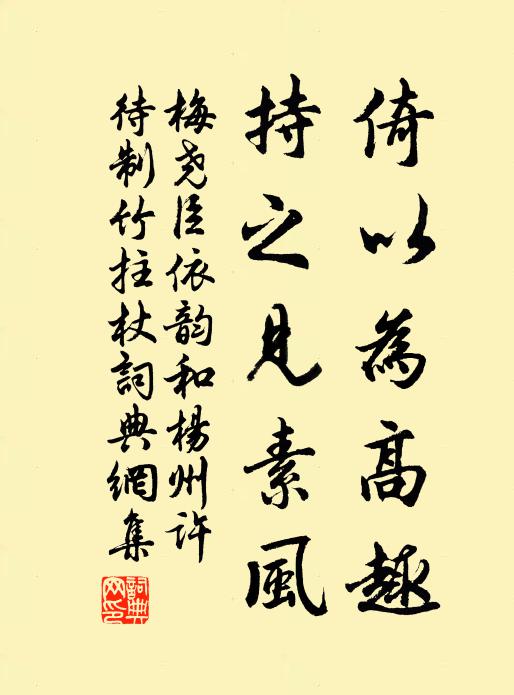 倚以為高趣
持之見素風
梅尧臣依韵和楊州許
待制竹拄杖詞典網集
詞典
网印